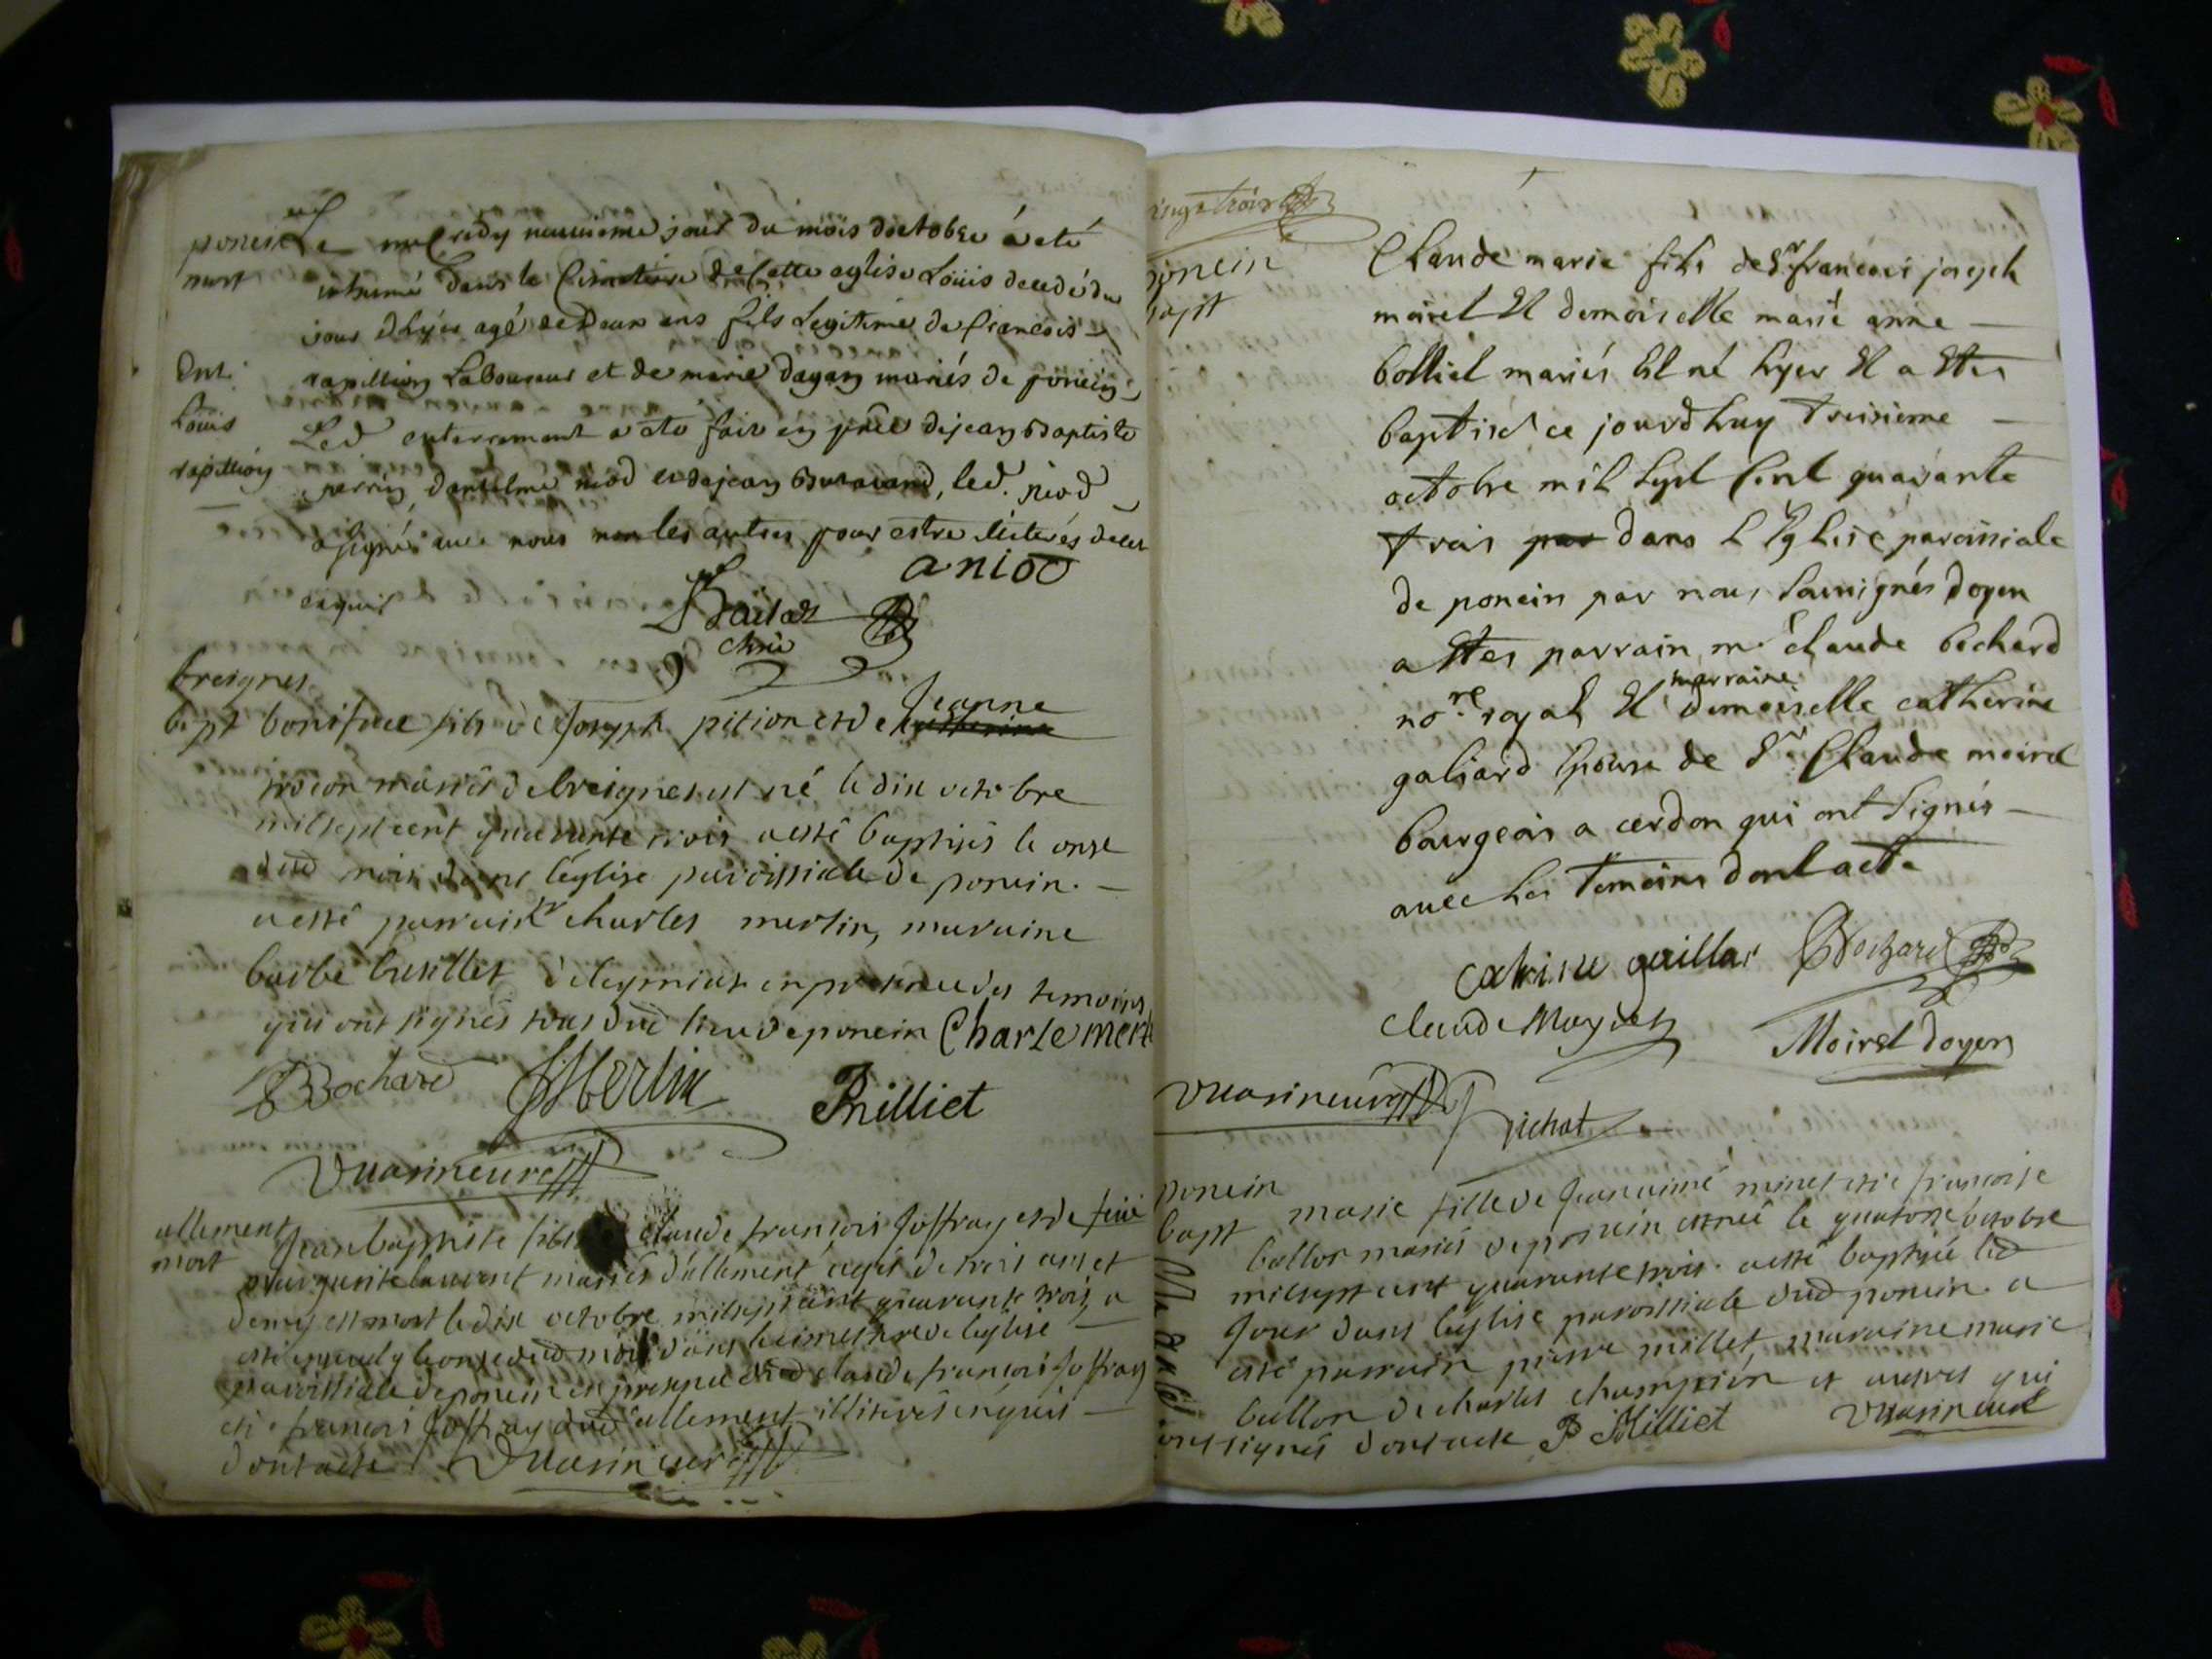 poncin Le mecredy neuvieme jour du mois doctobre a eté
mort inhumé dans le Cimetiere de Cette eglise Loüis decedé du
jour dhyer agé de Deux ans fils Legitime de francois
Ent. rapillion Laboureur et de marie dagan mariés de poncin
Loüis Led enterrement a eté fait en pñce de jean Baptiste
rapillion perrin, dantelme niod et de jean , led. niod
a signé avec nous non les autres pour estre illiterés de ce
enquis
aniod
breignes
bapt boniface fils de Joseph pition et de Jeanne
mariés de breignes est né le dix octobre
mil sept cent quarante trois a esté baptisés le onze
dud mois dans l'église paroissiale de poncin.
a esté parrain Sr charles merlin, maraine
barbe en presence des temoins
qui ont signés tous dud lieu de poncin Charle merl
Bochard JMerlin Pmilliet
Vuarineur
allement Jean baptiste fils claude francois Joffray et de feüe
mort marguerite laurent mariés d'allement agés de trois ans et
demy est mort le dix octobre mil sept cent quarante trois, a
esté le onze dud mois dans le cimetiere de leglise
paroissiale de poncin en presence dud claude francois Joffray
et francois Joffray dud allement illiterés enquis
dont acte Vuarineur
vingt trois
poncin
bapt
Claude marie fils de Sr francois joseph
moirel Et demoiselle marie anne
bolliet mariés Est né hyer Et a Etes
baptisé ce jourdhuy treisieme
octobre mil sept Cent quarante
trois par dans L'Eglise paroissiale
de poncin par nous soussignés doyen
a Etes parrain mr claude bochard
nore. royal Et marraine demoiselle catherine
galiard Epouse de Sr Claude moirel
bourgeois a cerdon qui ont signés
avec les temoins dont acte
catrine gaillar Bochard
claude Moirel doyen
Vuarineur pichat
poncin
bapt marie fille de Jean aimé minet et de francoise
ballor mariés de poncin est née le quatorze octobre
mil sept cent quarante trois. a esté baptisée led
Jour dans l'église paroissiale dud poncin. a
esté parrain pierre millet, maraine marie
ballor de charles champion et autres qui
ont signés dont acte P Milliet Vuarineur